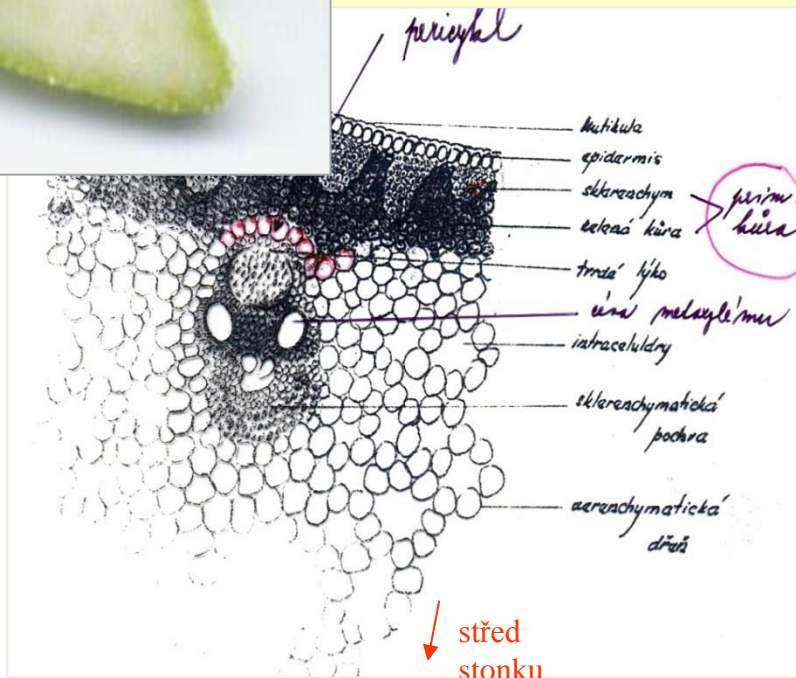 pericykl
kutikula
epidermis
sklerenchym
zelená kůra
prim.
kůra
tvrdé lýko
céva metaxylému
intraceluláry
sklerenchymatická
pochva
aerenchymatická
dřeň
střed
stonku